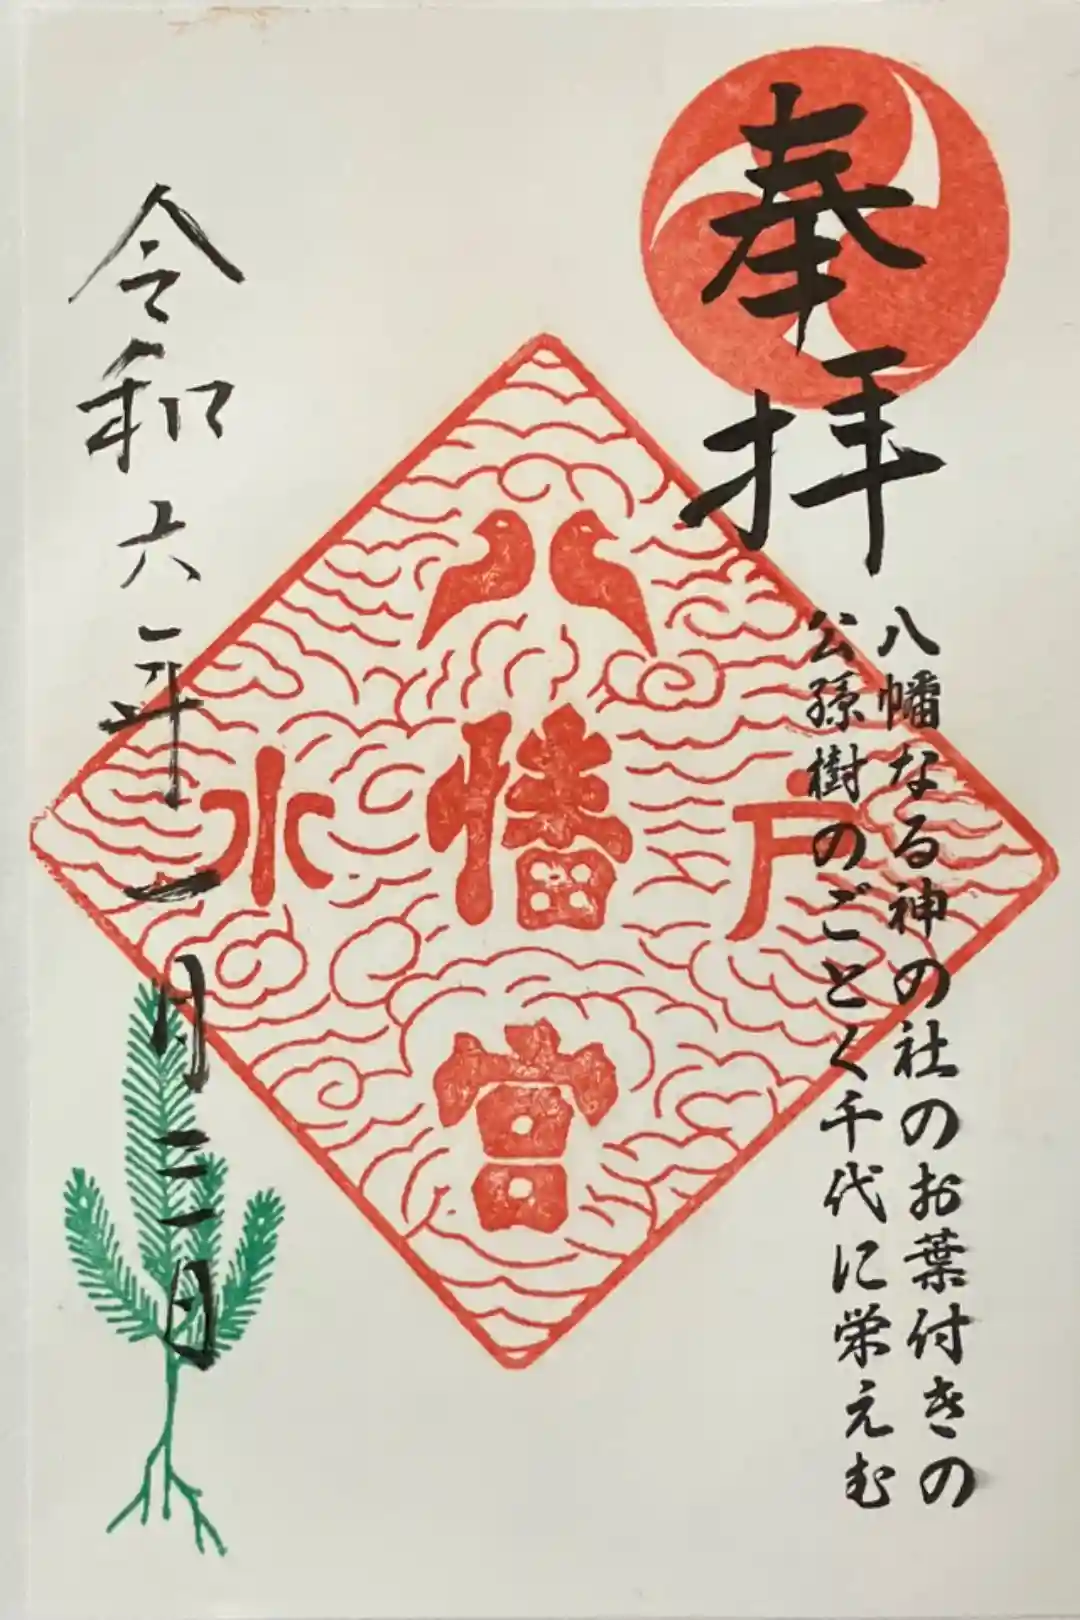 奉拝
八幡なる神の社のお葉付きの
公孫樹のごとく千代に栄えむ
水戸
八幡宮
令和六年一月三一日